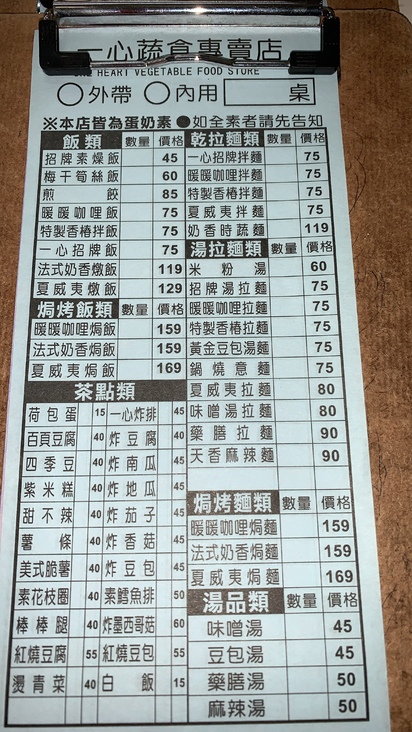 一心蔬食專賣店
ONE HEART VEGETABLE FOOD STORE
○外帶 ○內用 桌
※本店皆為蛋奶素 ●如全素者請先告知
飯類 數量 價格
招牌素燥飯 45
梅干筍絲飯 60
煎餃 85
暖暖咖哩飯 75
特製香椿拌飯 75
一心招牌飯 75
法式奶香燉飯 119
夏威夷燉飯 129
焗烤飯類 數量 價格
暖暖咖哩焗飯 159
法式奶香焗飯 159
夏威夷焗飯 169
茶點類
荷包蛋 15 一心炸排 45
百頁豆腐 40 炸豆腐 40
四季豆 40 炸南瓜 45
紫米糕 40 炸地瓜 45
甜不辣 40 炸茄子 45
薯條 40 炸香菇 45
美式脆薯 40 炸豆包 45
素花枝圈 40 素鱈魚排 50
棒棒腿 40 炸墨西哥菇 60
紅燒豆腐 55 紅燒豆包 55
燙青菜 40 白飯 15
乾拉麵類 數量 價格
一心招牌拌麵 75
暖暖咖哩拌麵 75
特製香椿拌麵 75
夏威夷拌麵 75
奶香時蔬麵 119
湯拉麵類 數量 價格
米粉湯 60
招牌湯拉麵 75
暖暖咖哩拉麵 75
特製香椿拉麵 75
黃金豆包湯麵 75
鍋燒意麵 75
夏威夷拉麵 80
味噌湯拉麵 80
藥膳拉麵 90
天香麻辣麵 90
焗烤麵類 數量 價格
暖暖咖哩焗麵 159
法式奶香焗麵 159
夏威夷焗麵 169
湯品類 數量 價格
味噌湯 45
豆包湯 45
藥膳湯 50
麻辣湯 50